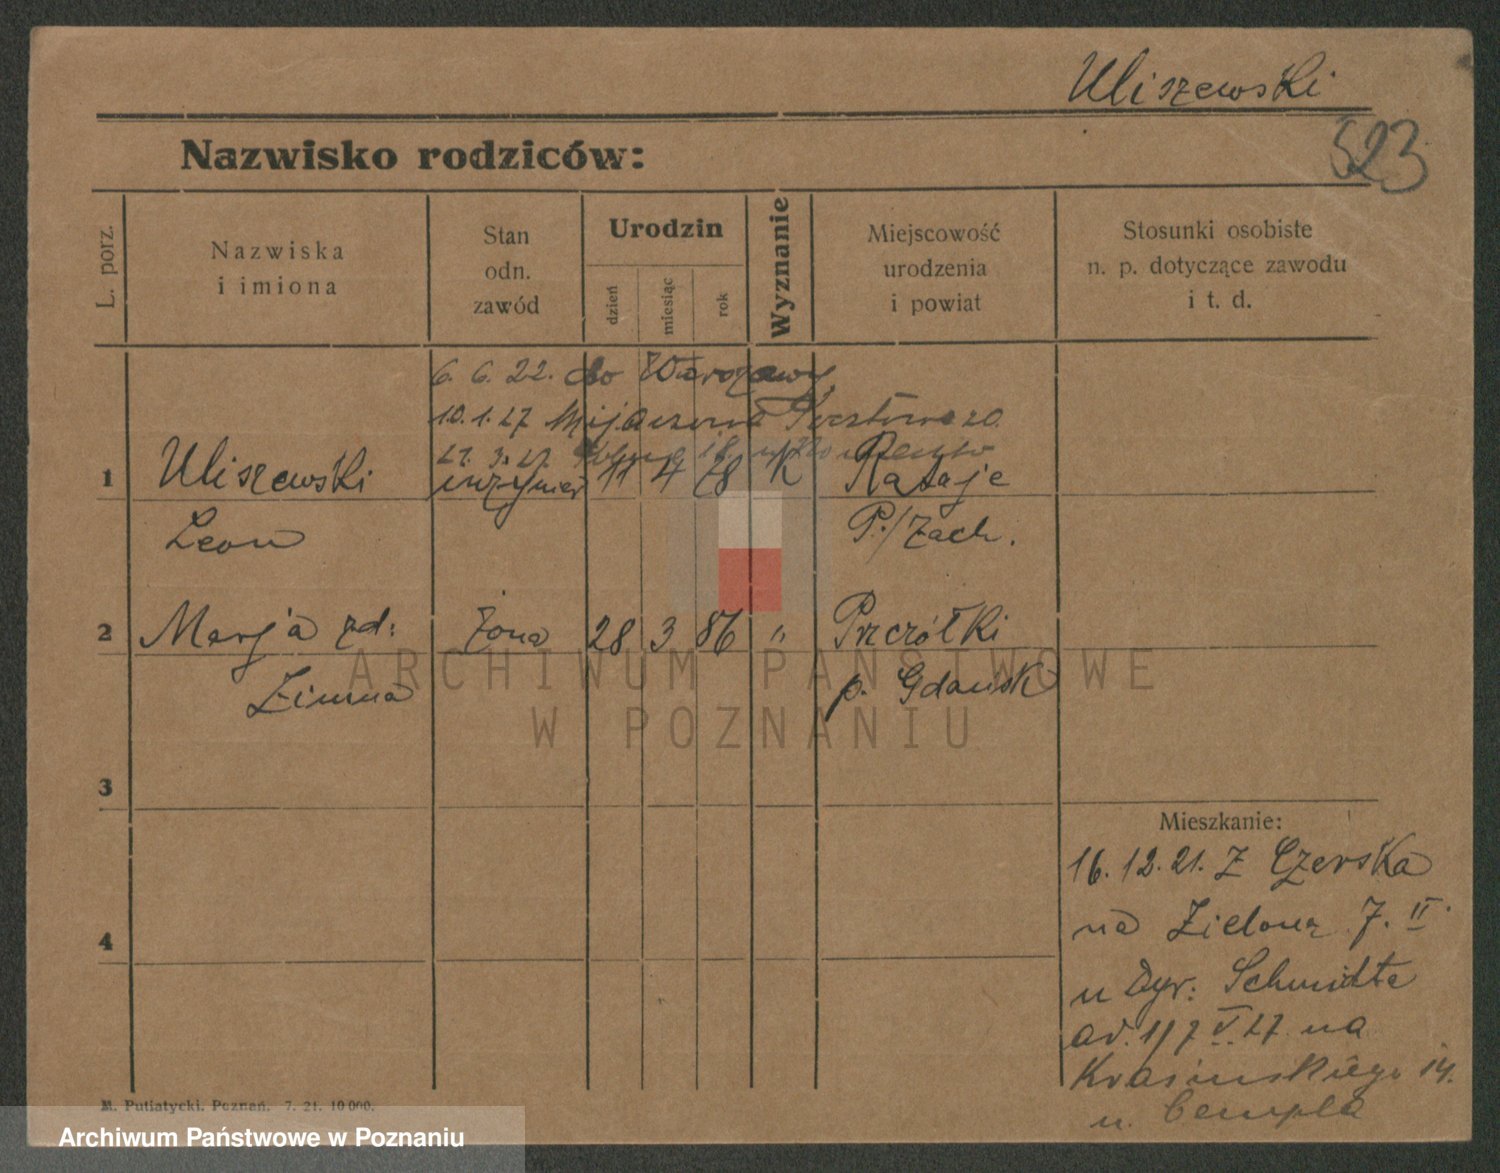 Uliszewski
523
Nazwisko rodziców:
L. porz.
Nazwiska
i imiona
Stan
odn.
zawód
Urodzin
dzień
miesiąc
rok
Wyznanie
Miejscowość
urodzenia
i powiat
Stosunki osobiste
n. p. dotyczące zawodu
i t. d.
6. 6. 22. do Warszawy
10. 1. 27
27. 3. 27
1 Uliszewski inżynier 11 4 78 K Rataje
Leon P./Zach.
2 Marja zd: żona 28 3 86 " Przczółki
Zimna p. Gdańsk
3
4
Mieszkanie:
16. 12. 21. z Czerska
na Zielona 7. II
u Dyr: Schmidta
od. 1/7 V. 27 na
Krasińskiego 14.
u.
M. Putiatycki. Poznań. 7. 21. 10 000.
ARCHIWUM PAŃSTWOWE
W POZNANIU
Archiwum Państwowe w Poznaniu